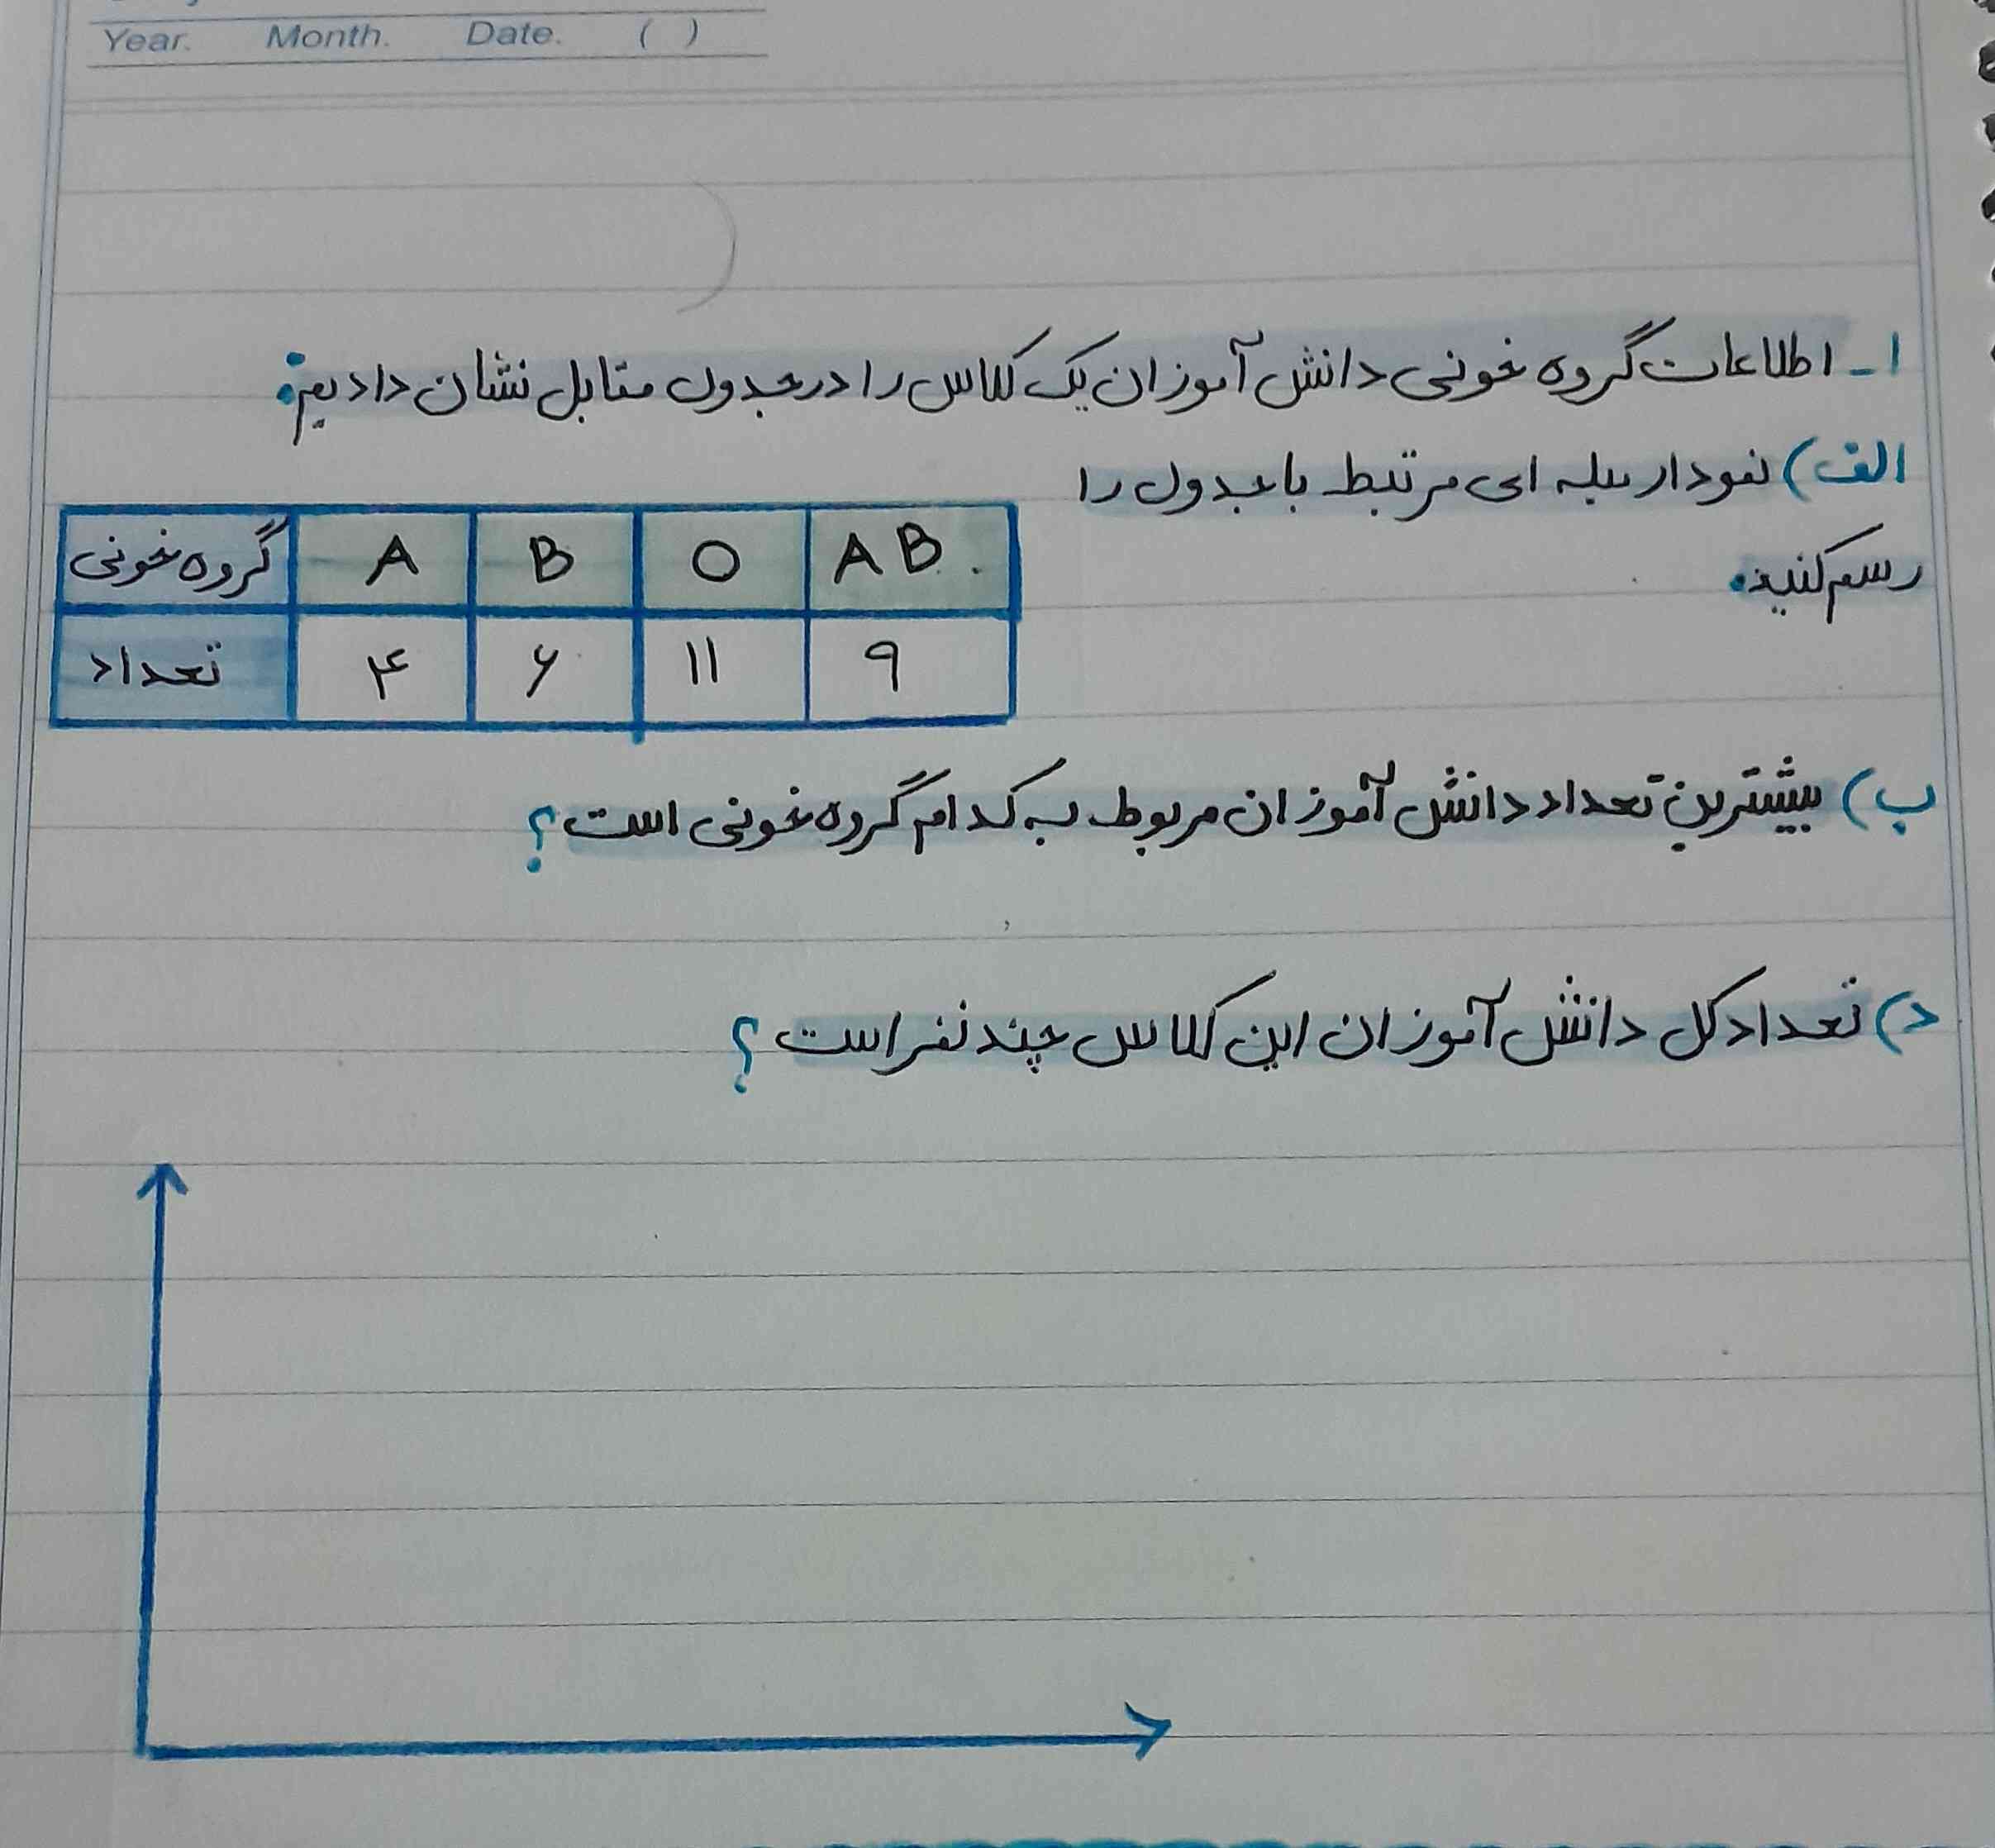 Year. Month. Date. ( )
۱- اطلاعات گروه خونی دانش آموزان یک کلاس را در جدول مقابل نشان دادیم.
الف) نمودار میله ای مرتبط با جدول را
رسم کنید.
گروه خونی A B O AB
تعداد ۴ ۶ ۱۱ ۹
ب) بیشترین تعداد دانش آموزان مربوط به کدام گروه خونی است؟
د) تعداد کل دانش آموزان این کلاس چند نفر است؟